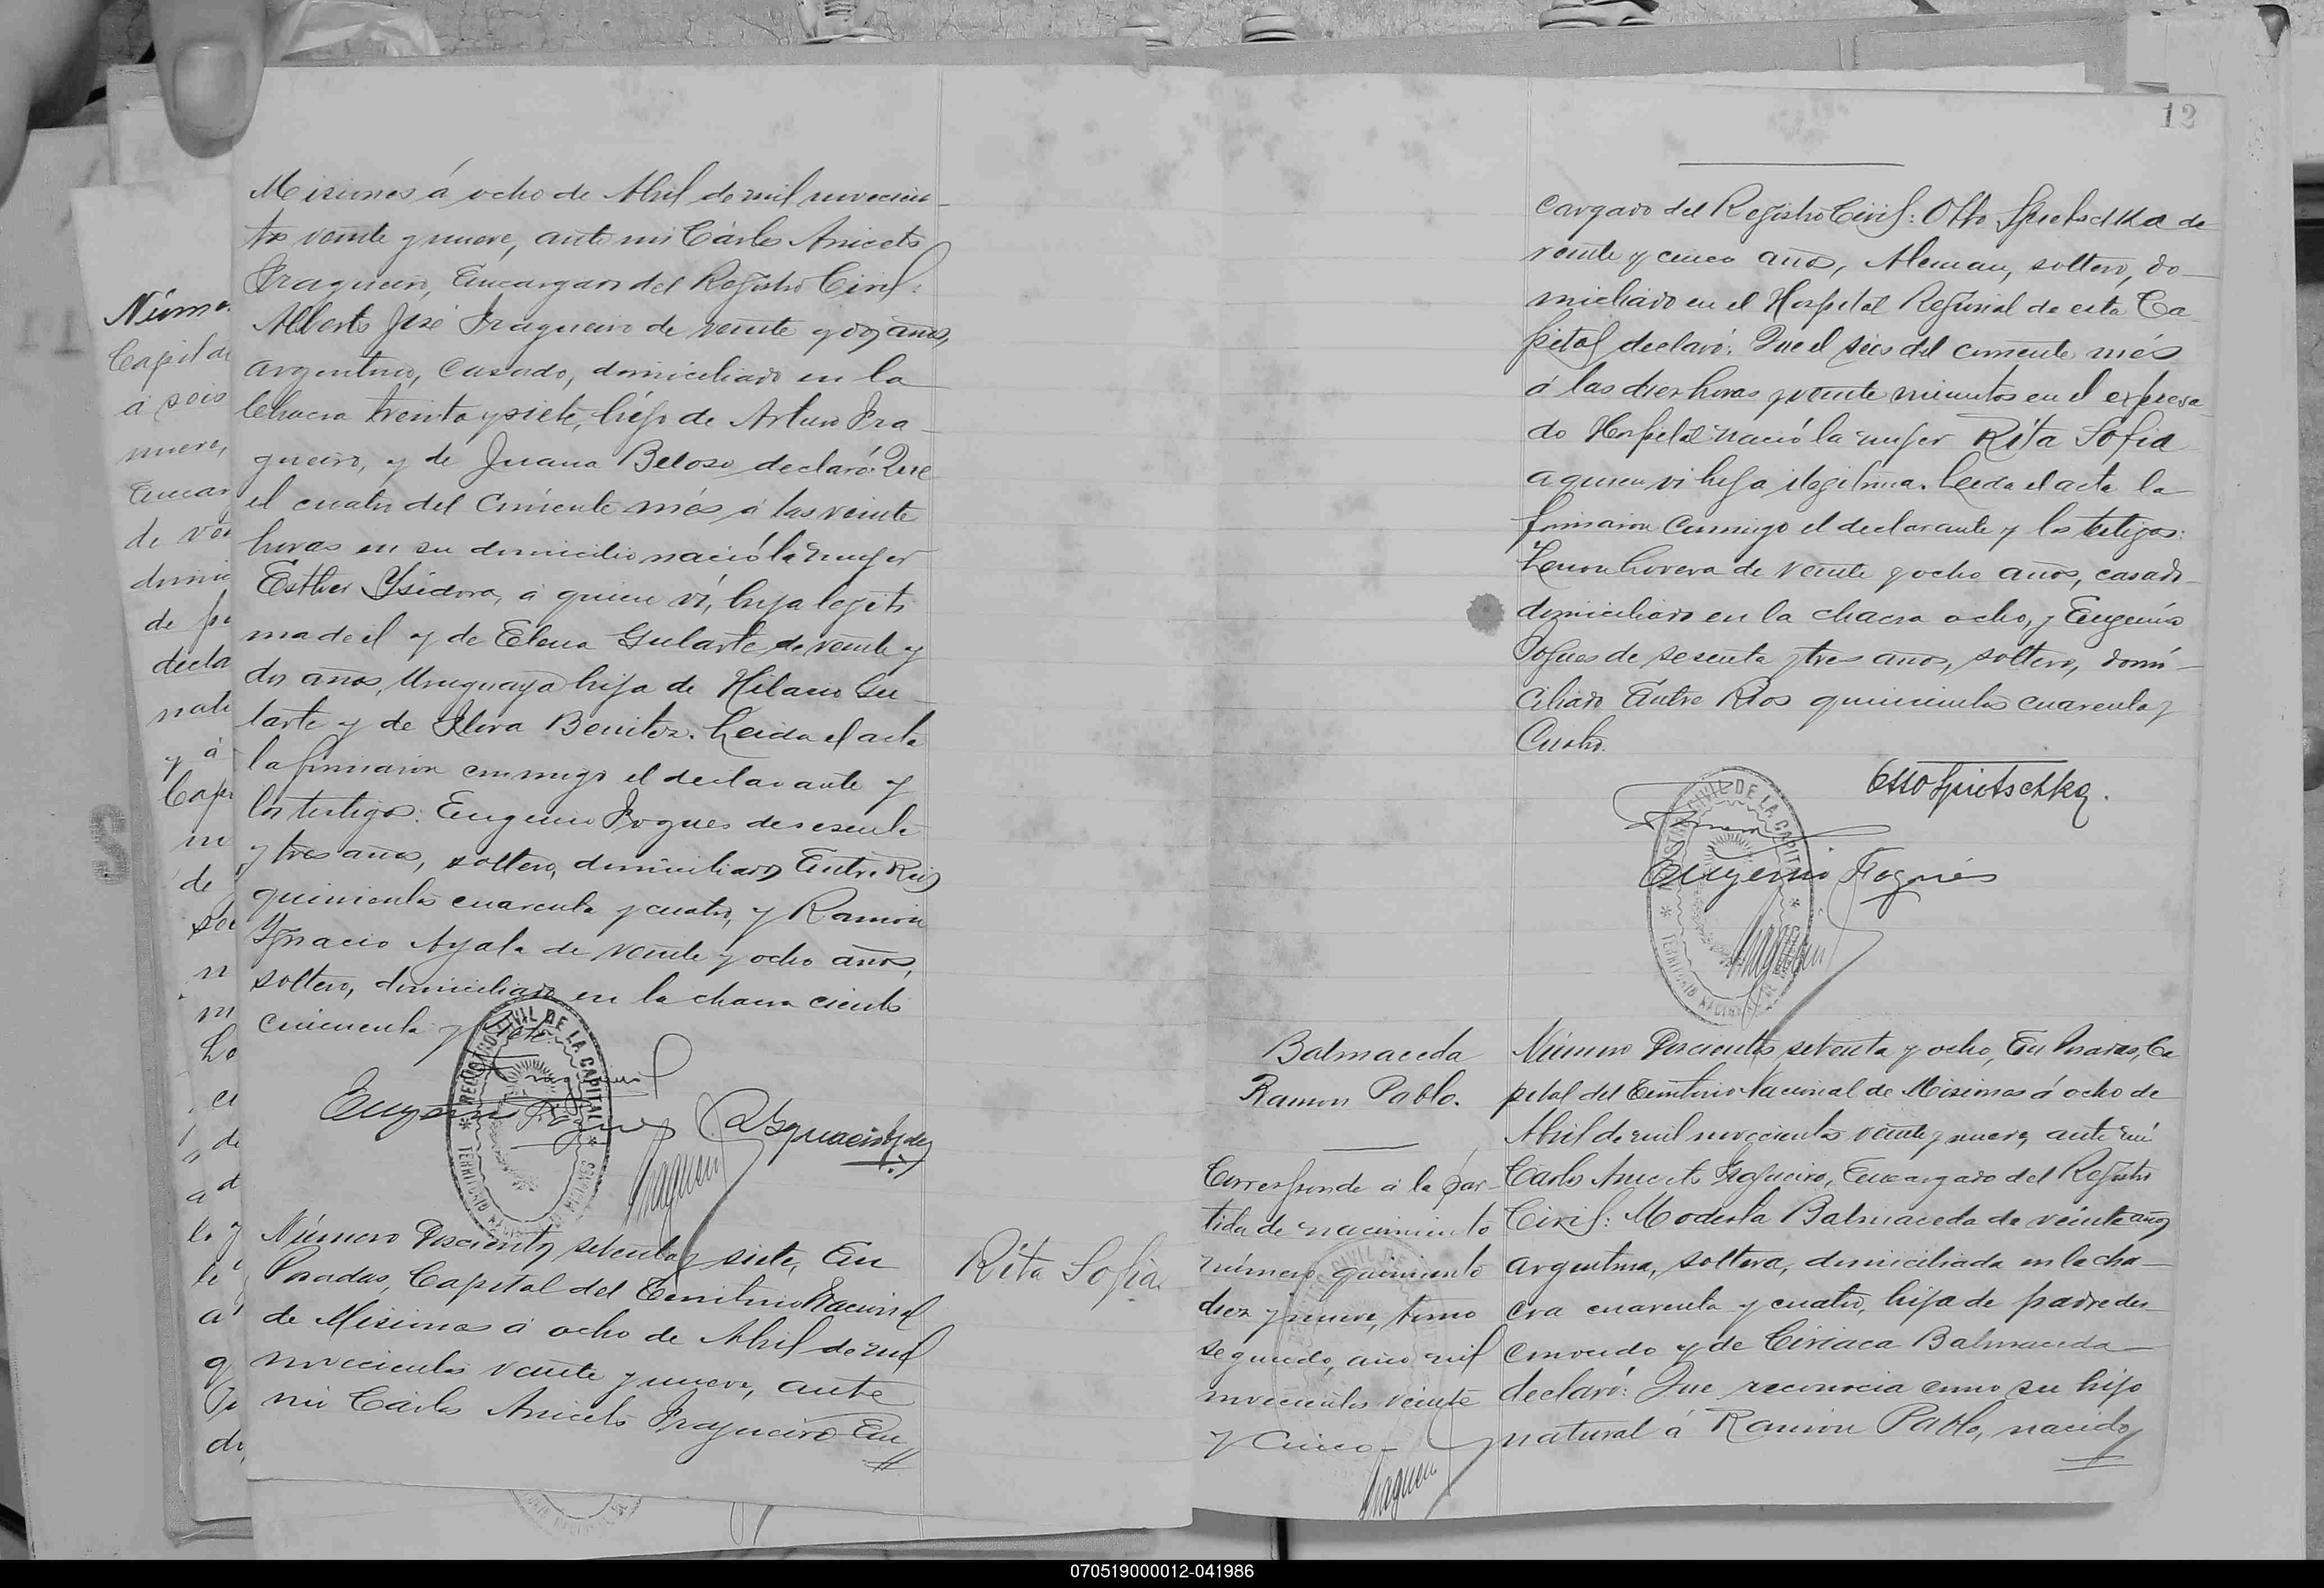 Misiones á ocho de Abril de mil novecien-
tos veinte y nueve, ante mi Cárlos Aniceto
Fragueiro, Encargado del Registro Civil:
Alberto José Fragueiro de veinte y dos años,
argentino, casado, domiciliado en la
chacra treinta y siete, hijo de Arturo Fra-
gueiro, y de Juana Beloso declaró: Que
el cuatro del corriente més á las veinte
horas en su domicilio nació la mujer
Esther Ysidora, á quien ví, hija legíti
ma de él y de Elena Gularte de veinte y
dos años, Uruguaya hija de Hilario Gu-
larte y de Flora Benitez. Leida el acta
la firmaron conmigo el declarante y
los testigos: Eugenio Fogues de sesenta
y tres años, soltero, domiciliado Entre Rios
quinientos cuarenta y cuatro, y Ramón
Ygnacio Ayala de veinte y ocho años,
soltero, domiciliado en la chacra ciento
cincuenta y siete.
REGISTRO CIVIL DE LA CAPITAL
TERRITORIO NACIONAL DE
Eugenio Fogues
Número Doscientos setenta y siete, En
Posadas, Capital del Territorio Nacional
de Misiones á ocho de Abril de mil
novecientos veinte y nueve, ante
mi Cárlos Aniceto Fragueiro En
Rita Sofia
Núme
Capital de
á seis
nueve,
Encar
de vei
domic
decla
12
cargado del Registro Civil: Otto Spietschka de
veinte y cinco años, Aleman, soltero, do-
miciliado en el Hospital Regional de esta Ca-
pital declaró: Que el seis del corriente més
á las diez horas y veinte minutos en el expresa-
do Hospital nació la mujer Rita Sofia
a quien vi hija ilegitima. Leida el acta la
firmaron conmigo el declarante y los testigos:
Lovera de veinte y ocho años, casado
domiciliado en la chacra ocho, y Eugenio
Fogues de sesenta y tres años, soltero, domi-
ciliado Entre Rios quinientos cuarenta y
Cuatro.
Otto Spietschka.
REGISTRO CIVIL DE LA CAPITAL
TERRITORIO NACIONAL DE
Eugenio Fogues
Balmaceda
Ramon Pablo.
Corresponde á la par-
tida de nacimiento
número quiniento
diez y nueve, tomo
segundo, año mil
novecientos veinte
y cinco-
Número Doscientos setenta y ocho, En Posadas, Ca
pital del Territorio Nacional de Misiones á ocho de
Abril de mil novecientos veinte y nueve, ante mi
Carlos Aniceto Fragueiro, Encargado del Registro
Civil: Modesta Balmaceda de veinte años
argentina, soltera, domiciliada en la cha-
cra cuarenta y cuatro, hija de padre des-
conocido y de Ciriaca Balmaceda
declaró: Que reconocia como su hijo
natural á Ramón Pablo, nacido
070519000012-041986